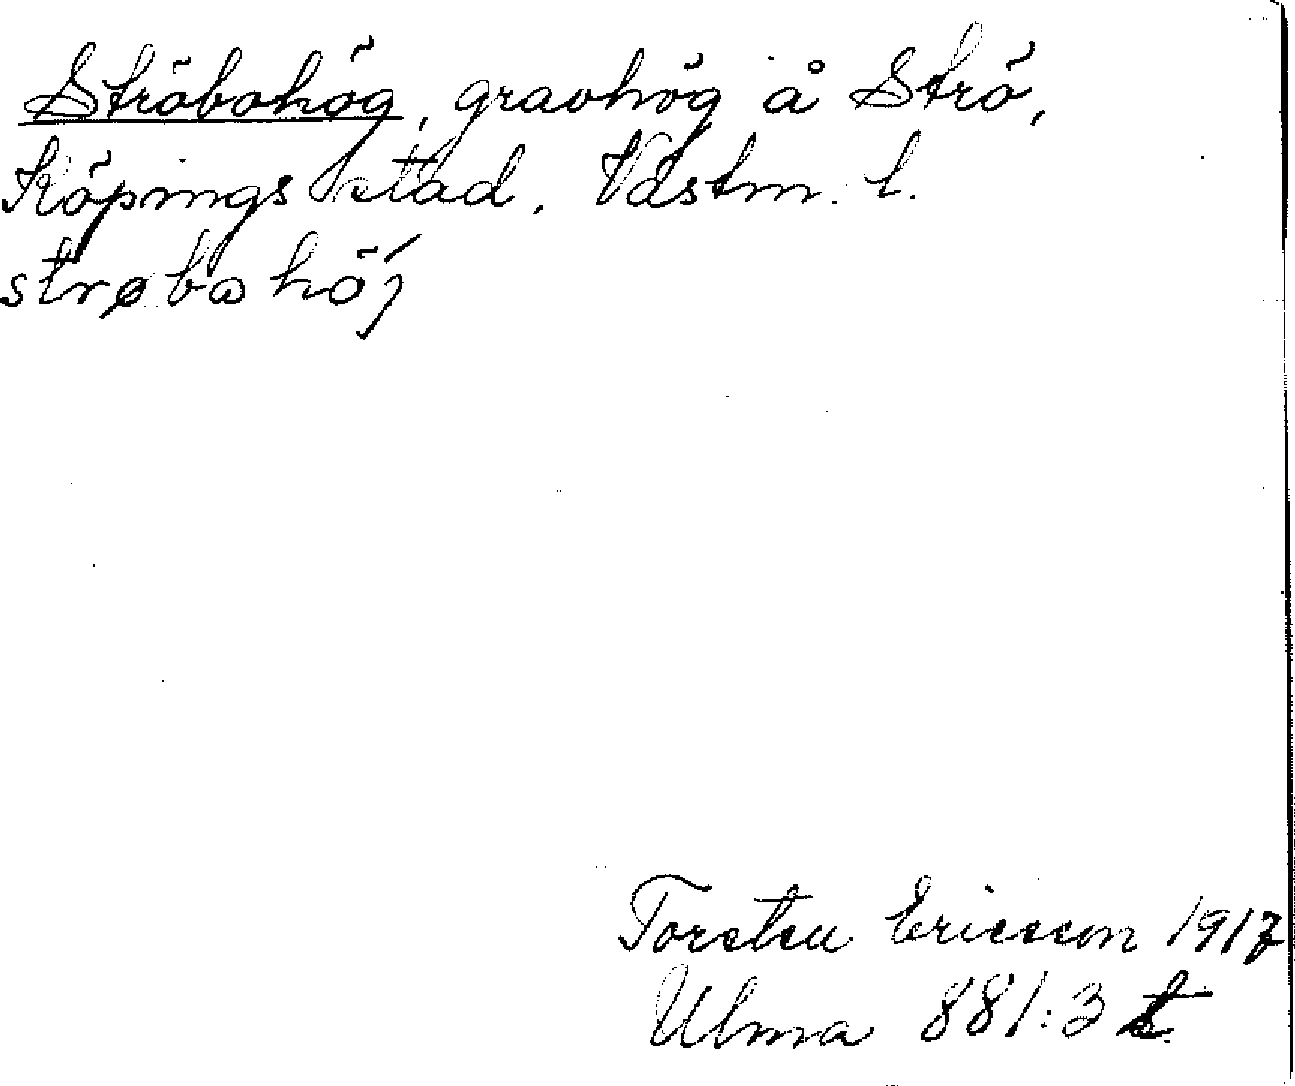 Ströbohög, gravhög å Strö,
Köpings stad. Västm. l.
strøbɷhö́j
Torsten Ericsson 1917
Ulma 881:3